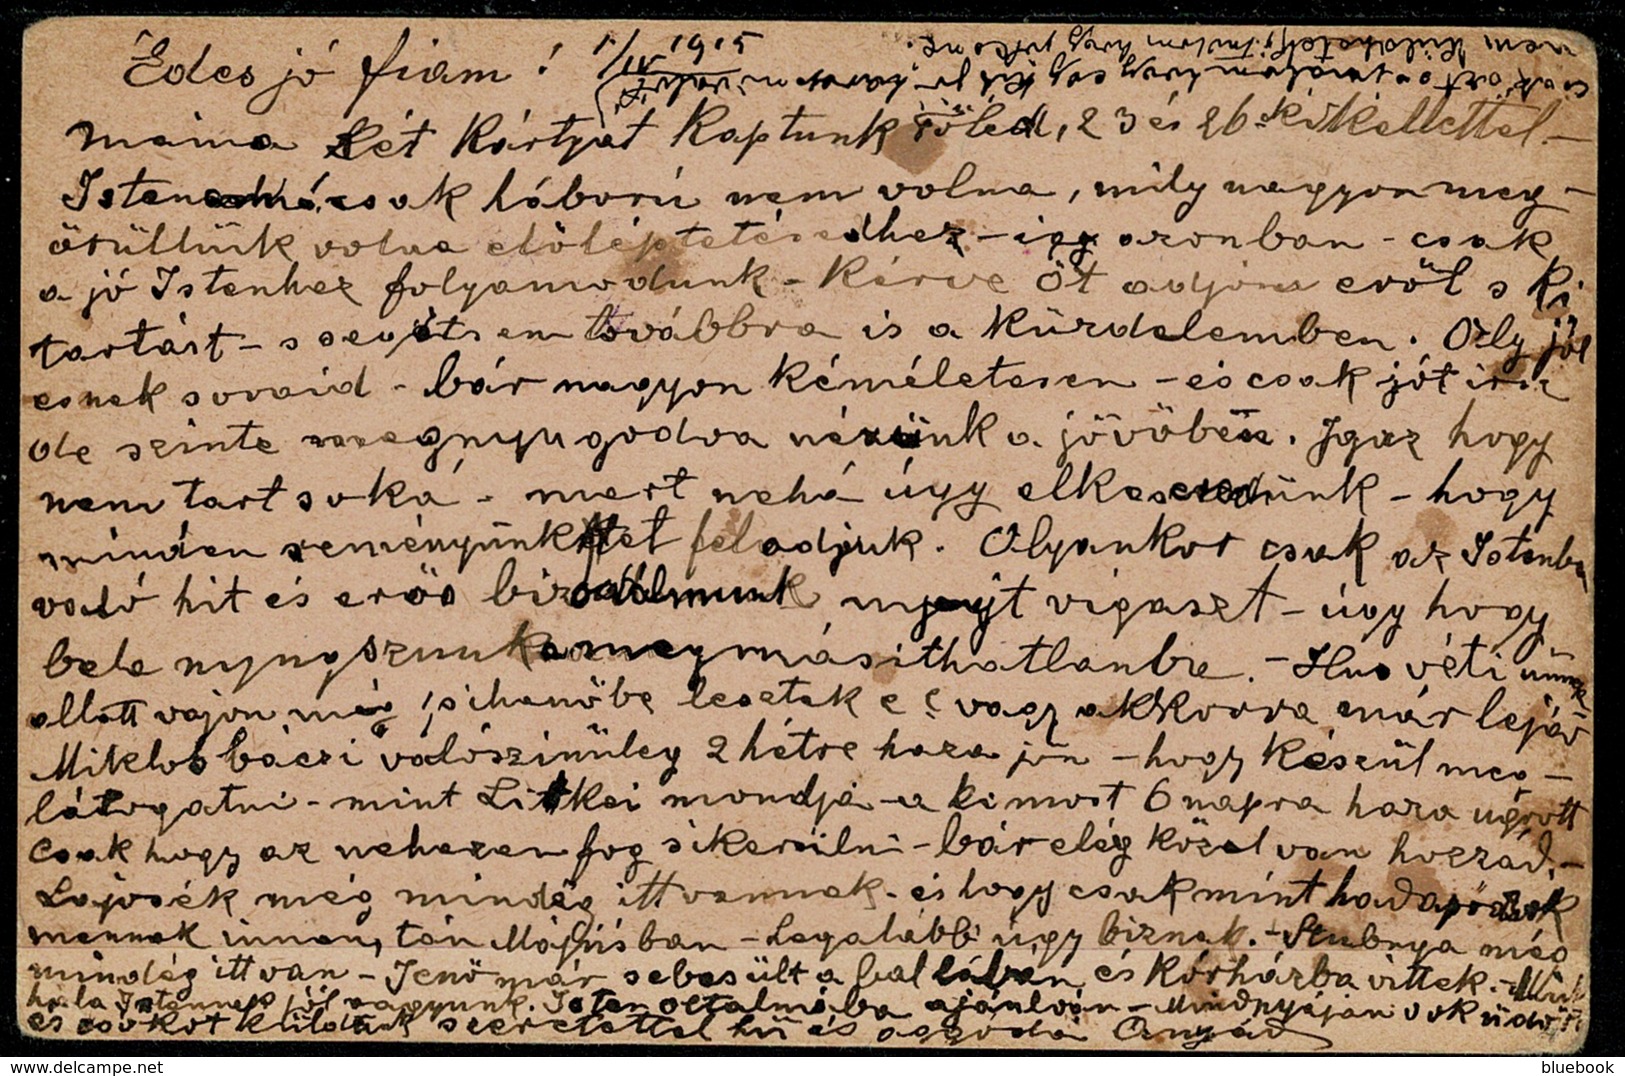 Édes jó fiam! 1/IV 1915
mama két kártyát kaptunk tőled, 23 és 26ki kelettel.-
Istenem csak háború nem volna, mily nagyon meg-
örültünk volna előléptetésedhez - így azonban - csak
a jó Istenhez folyamodunk - Kérve Őt adjon erőt s ki
tartást - s segítsen továbbra is a küzdelemben. Oly jól
esnek soraid - bár nagyon kéméletesen - és csak jót írsz
de szinte megnyugodva nézünk a jövőbe. Igaz hogy
nem tart soká - mert néha úgy elkeseredünk - hogy
minden reményünket feladjuk. Olyankor csak az Istenbe
való hit és erős bizodalmunk nyújt vigaszt - úgy hogy
bele nyugszunk a megmásíthatlanbe. - Húsvéti ünnep
allatt vajon még pihenőbe lesztek e? vagy akkorra már lejár
Miklos bácsi valószinüleg 2 hétre haza jön - hogy készül meg-
látogatni - mint Litkei mondja - a ki most 6 napra haza ugrott
csak hogy az nehezen fog sikerülni - bár elég közel van hozzád.-
Lajosék még mindég itt vannak - és hogy csak mint hadapródok
mennek innen, tán Májusban - Legalább úgy biznak. - Stubnya még
mindég itt van - Jenő már sebesült a bal lábán és kórházba vittek. - Mink
hála Istennek jól vagyunk. Isten oltalmába ajánlván - Mindnyájan sok üdvöz
és csókot küldünk szeretettel hű és aggódó Anyád
csak azt sajnálom hogy egy
nem küldhetek, tudom hogy jól esne.